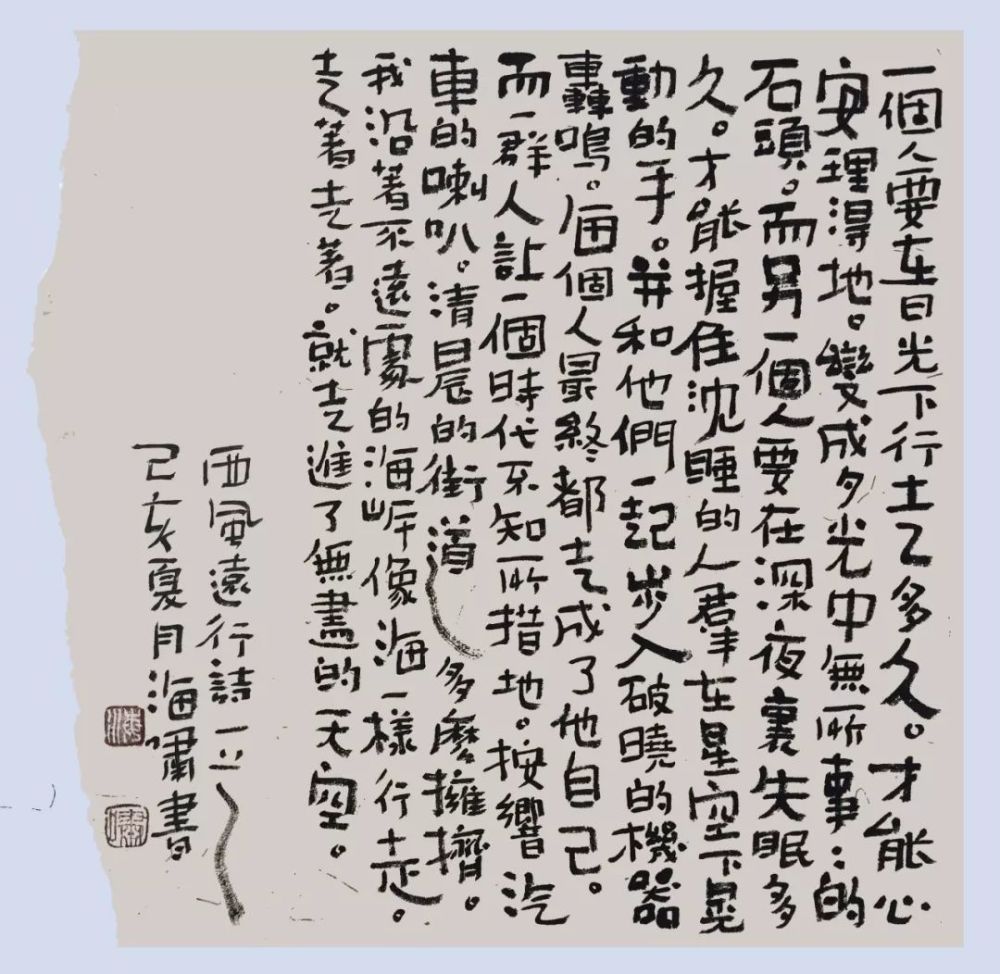 一個人要在日光下行走多久。才能心
安理得地。變成夕光中無所事:的
石頭。而另一個人要在深夜裏失眠多
久。才能握住沈睡的人羣在星空下晃
動的手。并和他們一起步入破曉的機器
轟鳴。每個人最終都走成了他自己。
而一群人让一個時代不知所措地。按響汽
車的喇叭。清晨的街道多麼擁擠。
我沿著不遠處的海岸像海一樣行走。
走著走著。就走進了無盡的天空。
西風遠行詩一
己亥夏月海嘯書